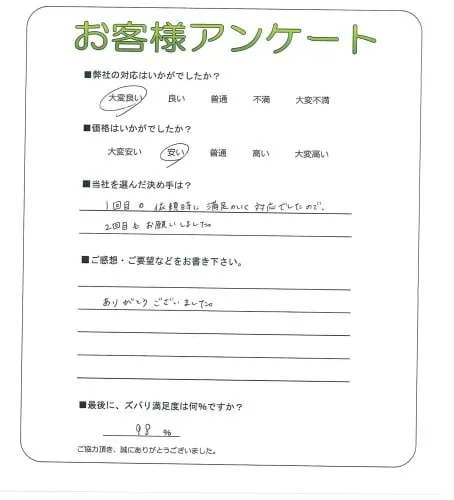 お客様アンケート
■弊社の対応はいかがでしたか？
大変良い 良い 普通 不満 大変不満
■価格はいかがでしたか？
大変安い 安い 普通 高い 大変高い
■当社を選んだ決め手は？
1回目の依頼時に満足がいく対応でしたので、
2回目もお願いしました。
■ご感想・ご要望などをお書き下さい。
ありがとうございました。
■最後に、ズバリ満足度は何%ですか？
98 %
ご協力頂き、誠にありがとうございました。